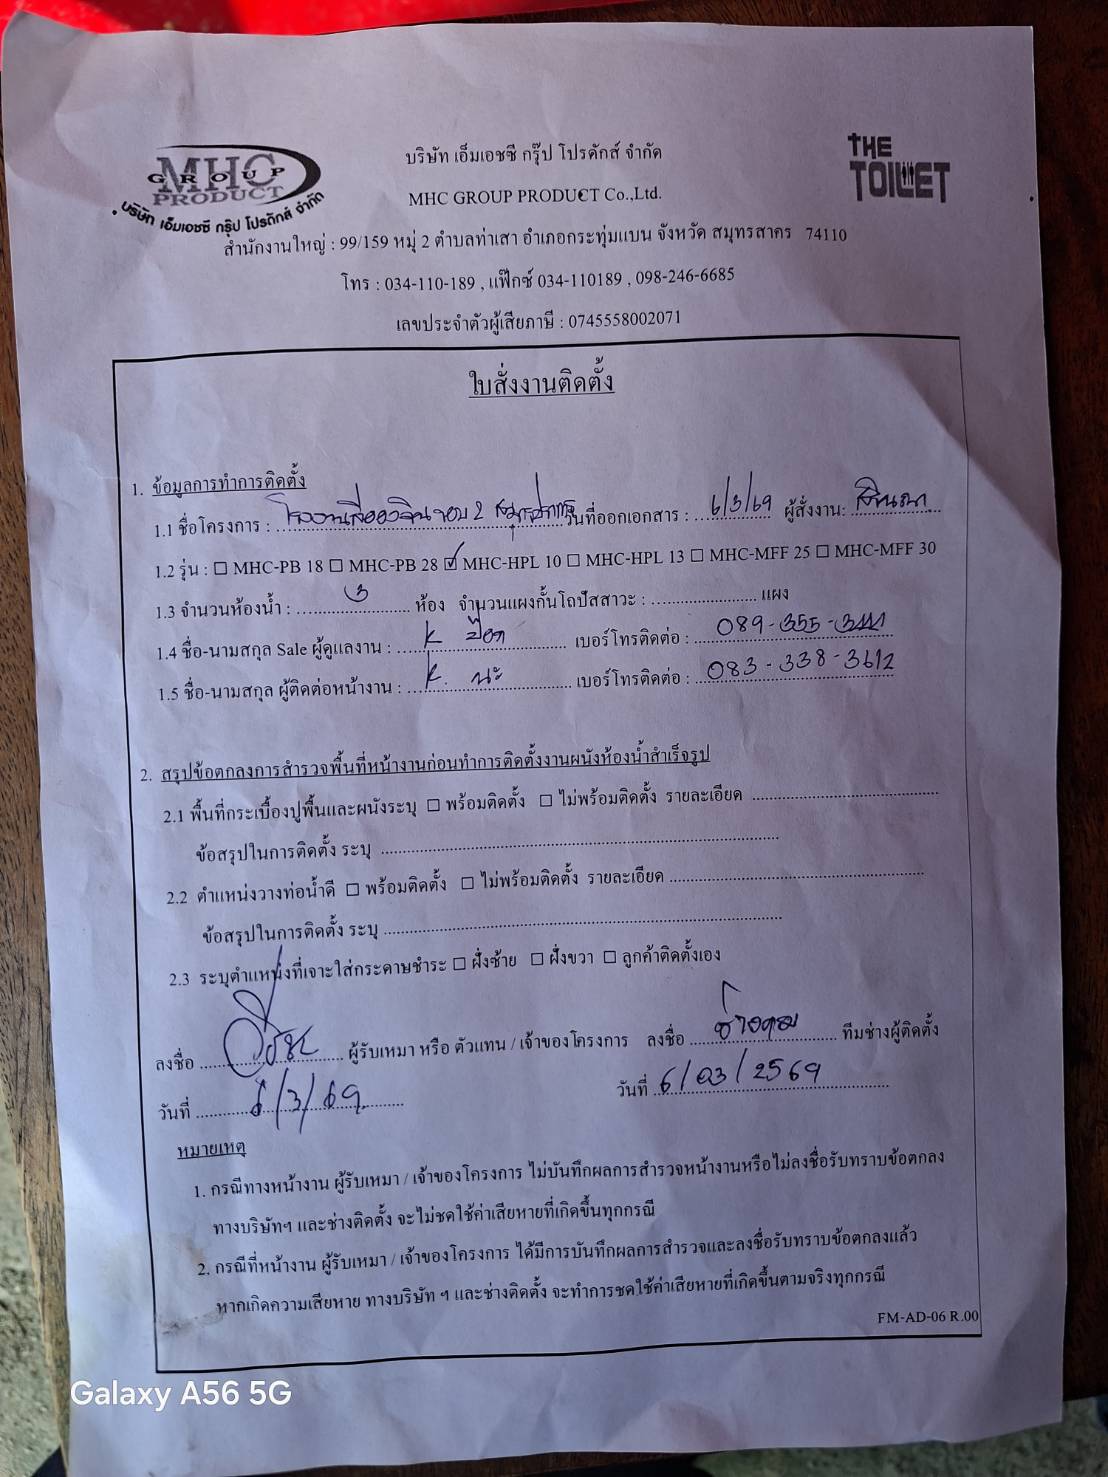 MHC
GROUP
PRODUCT
บริษัท เอ็มเอชซี กรุ๊ป โปรดักส์ จำกัด
THE
TOILET
บริษัท เอ็มเอชซี กรุ๊ป โปรดักส์ จำกัด
MHC GROUP PRODUCT Co.,Ltd.
สำนักงานใหญ่ : 99/159 หมู่ 2 ตำบลท่าเสา อำเภอกระทุ่มแบน จังหวัด สมุทรสาคร 74110
โทร : 034-110-189 , แฟ๊กซ์ 034-110189 , 098-246-6685
เลขประจำตัวผู้เสียภาษี : 0745558002071
ใบสั่งงานติดตั้ง
1. ข้อมูลการทำการติดตั้ง
1.1 ชื่อโครงการ : โรงงาน 2 วันที่ออกเอกสาร : 6/3/69 ผู้สั่งงาน:
1.2 รุ่น : ☐ MHC-PB 18 ☐ MHC-PB 28 ☑ MHC-HPL 10 ☐ MHC-HPL 13 ☐ MHC-MFF 25 ☐ MHC-MFF 30
1.3 จำนวนห้องน้ำ : 3 ห้อง จำนวนแผงกั้นโถปัสสาวะ : แผง
1.4 ชื่อ-นามสกุล Sale ผู้ดูแลงาน : K ป๊อก เบอร์โทรติดต่อ : 089-355-
1.5 ชื่อ-นามสกุล ผู้ติดต่อหน้างาน : K. นะ เบอร์โทรติดต่อ : 083-338-3612
2. สรุปข้อตกลงการสำรวจพื้นที่หน้างานก่อนทำการติดตั้งงานผนังห้องน้ำสำเร็จรูป
2.1 พื้นที่กระเบื้องปูพื้นและผนังระบุ ☐ พร้อมติดตั้ง ☐ ไม่พร้อมติดตั้ง รายละเอียด
ข้อสรุปในการติดตั้ง ระบุ
2.2 ตำแหน่งวางท่อน้ำดี ☐ พร้อมติดตั้ง ☐ ไม่พร้อมติดตั้ง รายละเอียด
ข้อสรุปในการติดตั้ง ระบุ
2.3 ระบุตำแหน่งที่เจาะใส่กระดาษชำระ ☐ ฝั่งซ้าย ☐ ฝั่งขวา ☐ ลูกค้าติดตั้งเอง
ลงชื่อ ผู้รับเหมา หรือ ตัวแทน / เจ้าของโครงการ ลงชื่อ ทีมช่างผู้ติดตั้ง
วันที่ 6/3/69 วันที่ 6/03/2569
หมายเหตุ
1. กรณีทางหน้างาน ผู้รับเหมา / เจ้าของโครงการ ไม่บันทึกผลการสำรวจหน้างานหรือไม่ลงชื่อรับทราบข้อตกลง
ทางบริษัทฯ และช่างติดตั้ง จะไม่ชดใช้ค่าเสียหายที่เกิดขึ้นทุกกรณี
2. กรณีที่หน้างาน ผู้รับเหมา / เจ้าของโครงการ ได้มีการบันทึกผลการสำรวจและลงชื่อรับทราบข้อตกลงแล้ว
หากเกิดความเสียหาย ทางบริษัท ฯ และช่างติดตั้ง จะทำการชดใช้ค่าเสียหายที่เกิดขึ้นตามจริงทุกกรณี
FM-AD-06 R.00
Galaxy A56 5G